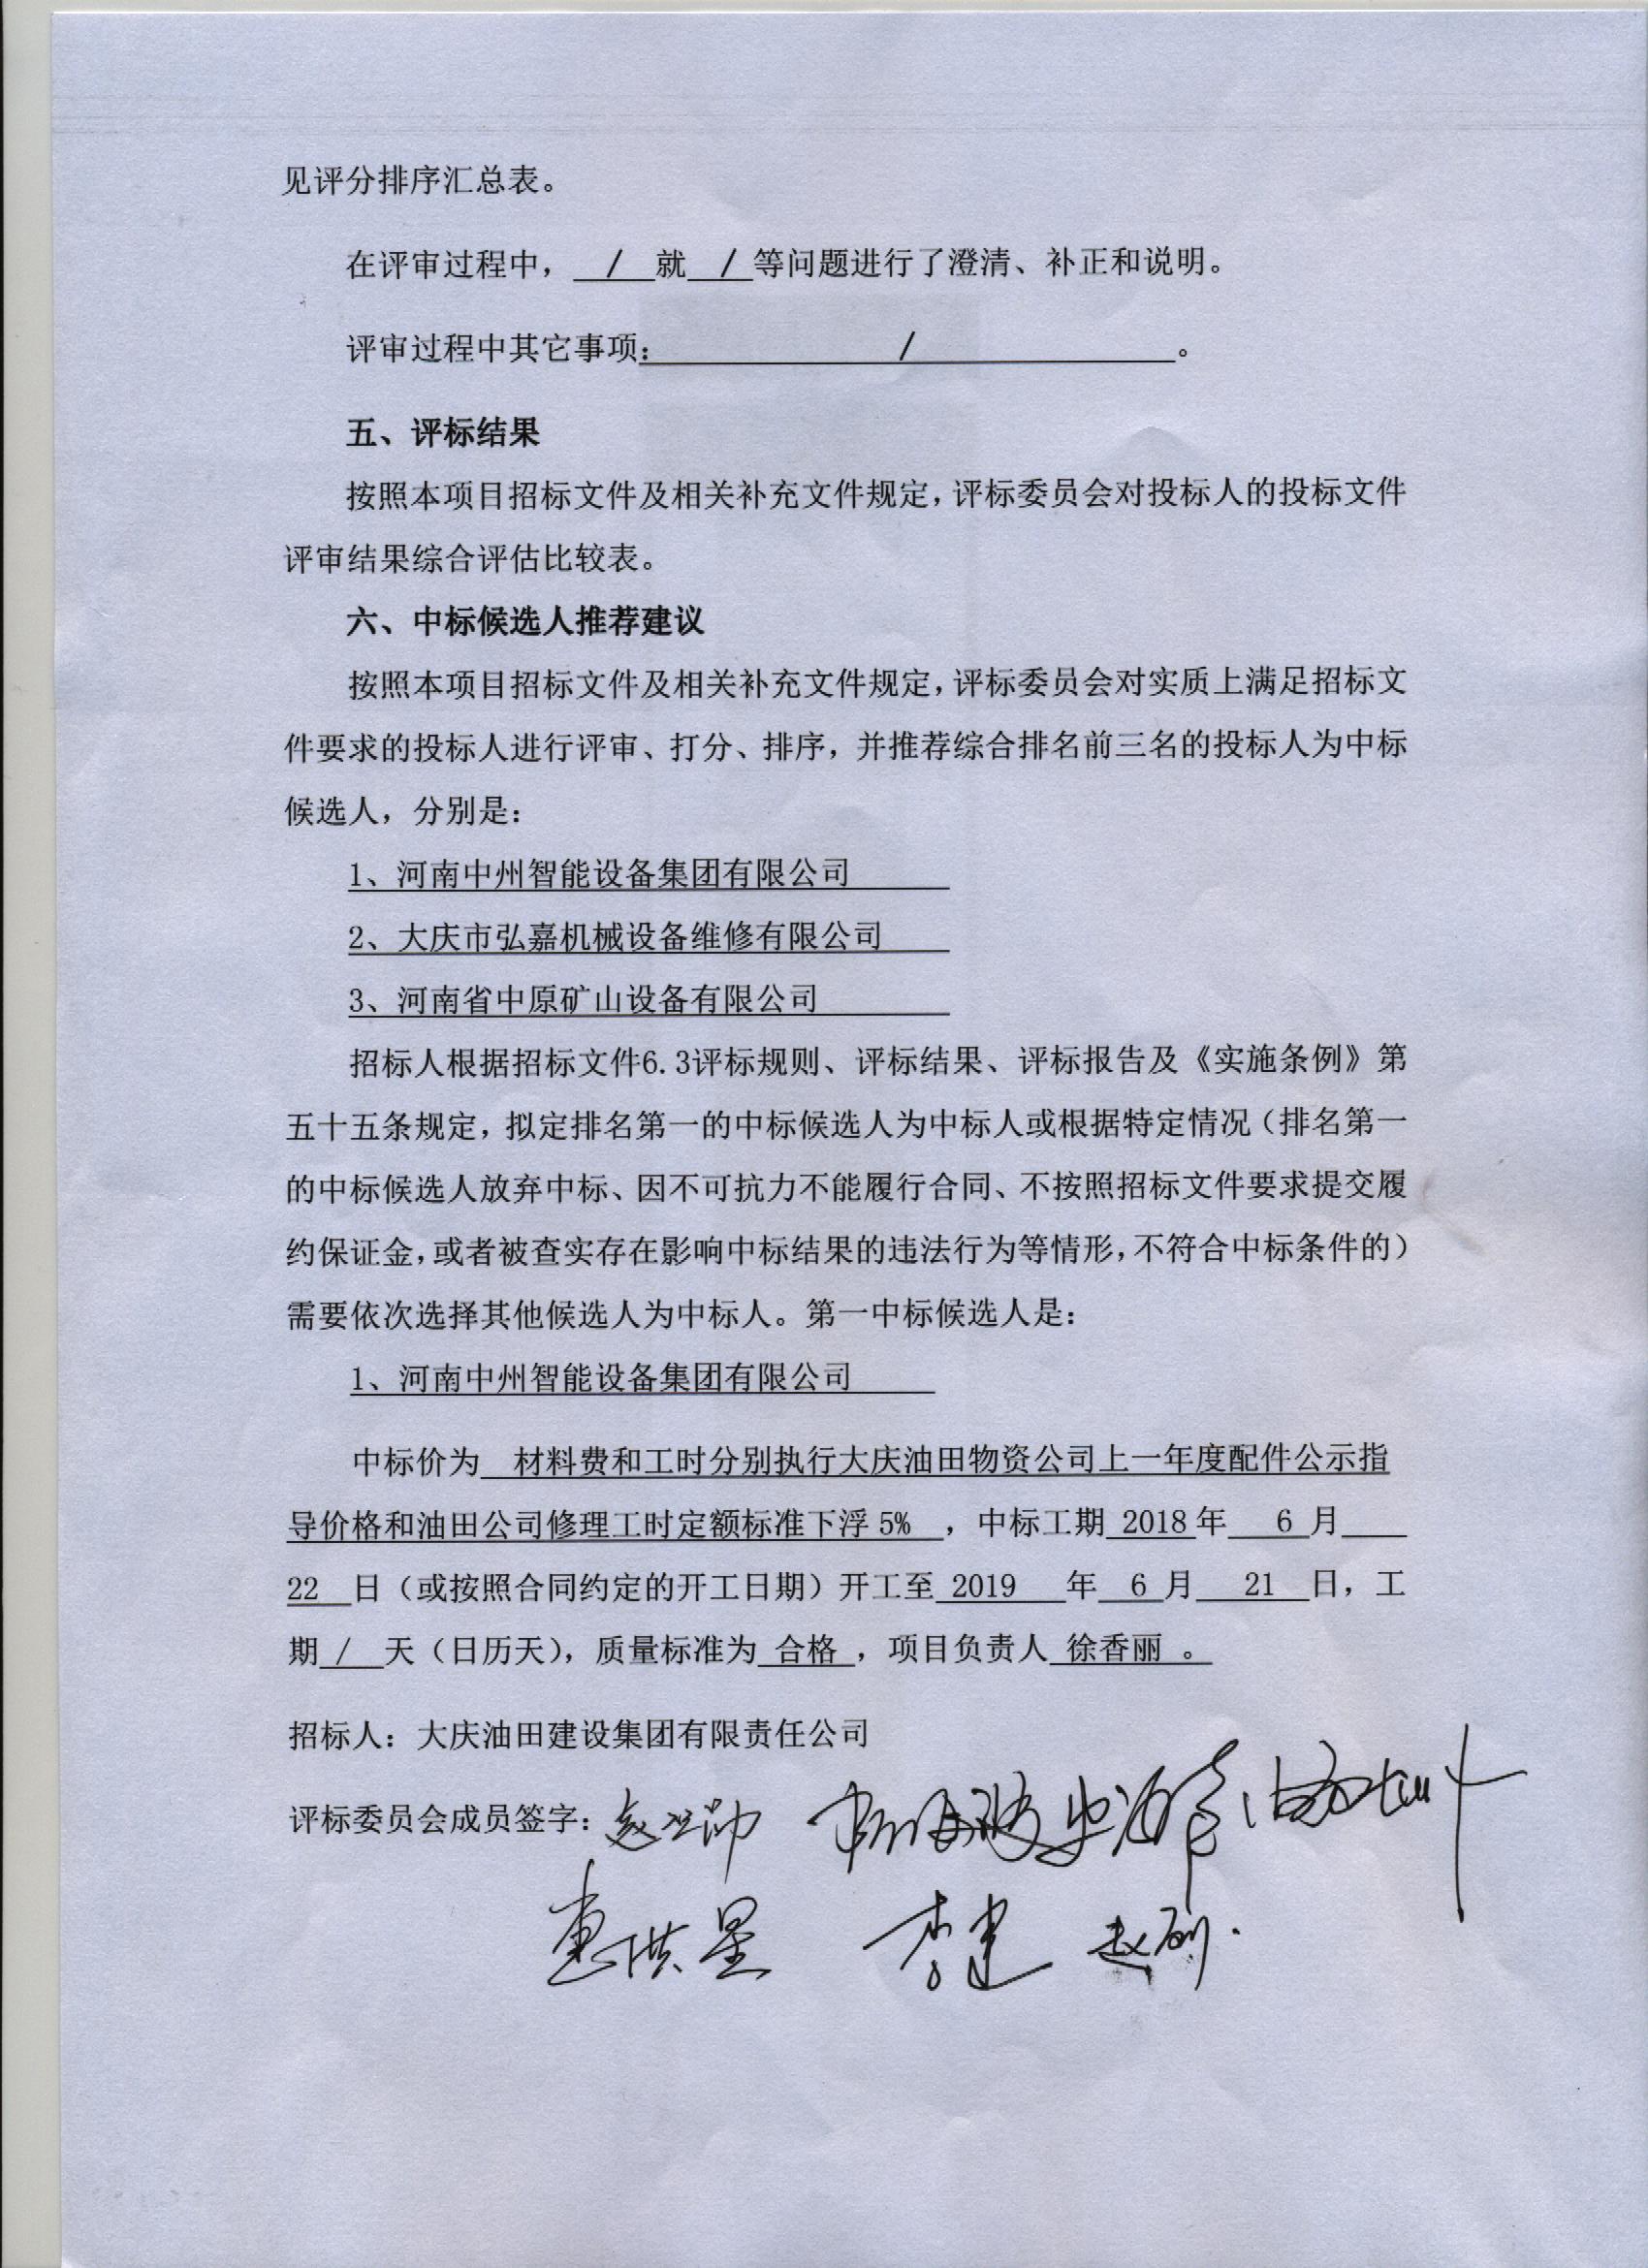 见评分排序汇总表。
在评审过程中， / 就 / 等问题进行了澄清、补正和说明。
评审过程中其它事项： / 。
五、评标结果
按照本项目招标文件及相关补充文件规定，评标委员会对投标人的投标文件
评审结果综合评估比较表。
六、中标候选人推荐建议
按照本项目招标文件及相关补充文件规定，评标委员会对实质上满足招标文
件要求的投标人进行评审、打分、排序，并推荐综合排名前三名的投标人为中标
候选人，分别是：
1、河南中州智能设备集团有限公司
2、大庆市弘嘉机械设备维修有限公司
3、河南省中原矿山设备有限公司
招标人根据招标文件6.3评标规则、评标结果、评标报告及《实施条例》第
五十五条规定，拟定排名第一的中标候选人为中标人或根据特定情况（排名第一
的中标候选人放弃中标、因不可抗力不能履行合同、不按照招标文件要求提交履
约保证金，或者被查实存在影响中标结果的违法行为等情形，不符合中标条件的）
需要依次选择其他候选人为中标人。第一中标候选人是：
1、河南中州智能设备集团有限公司
中标价为 材料费和工时分别执行大庆油田物资公司上一年度配件公示指
导价格和油田公司修理工时定额标准下浮 5% ，中标工期 2018 年 6 月
22 日（或按照合同约定的开工日期）开工至 2019 年 6 月 21 日，工
期 / 天（日历天），质量标准为 合格 ，项目负责人 徐香丽 。
招标人：大庆油田建设集团有限责任公司
评标委员会成员签字：
李建